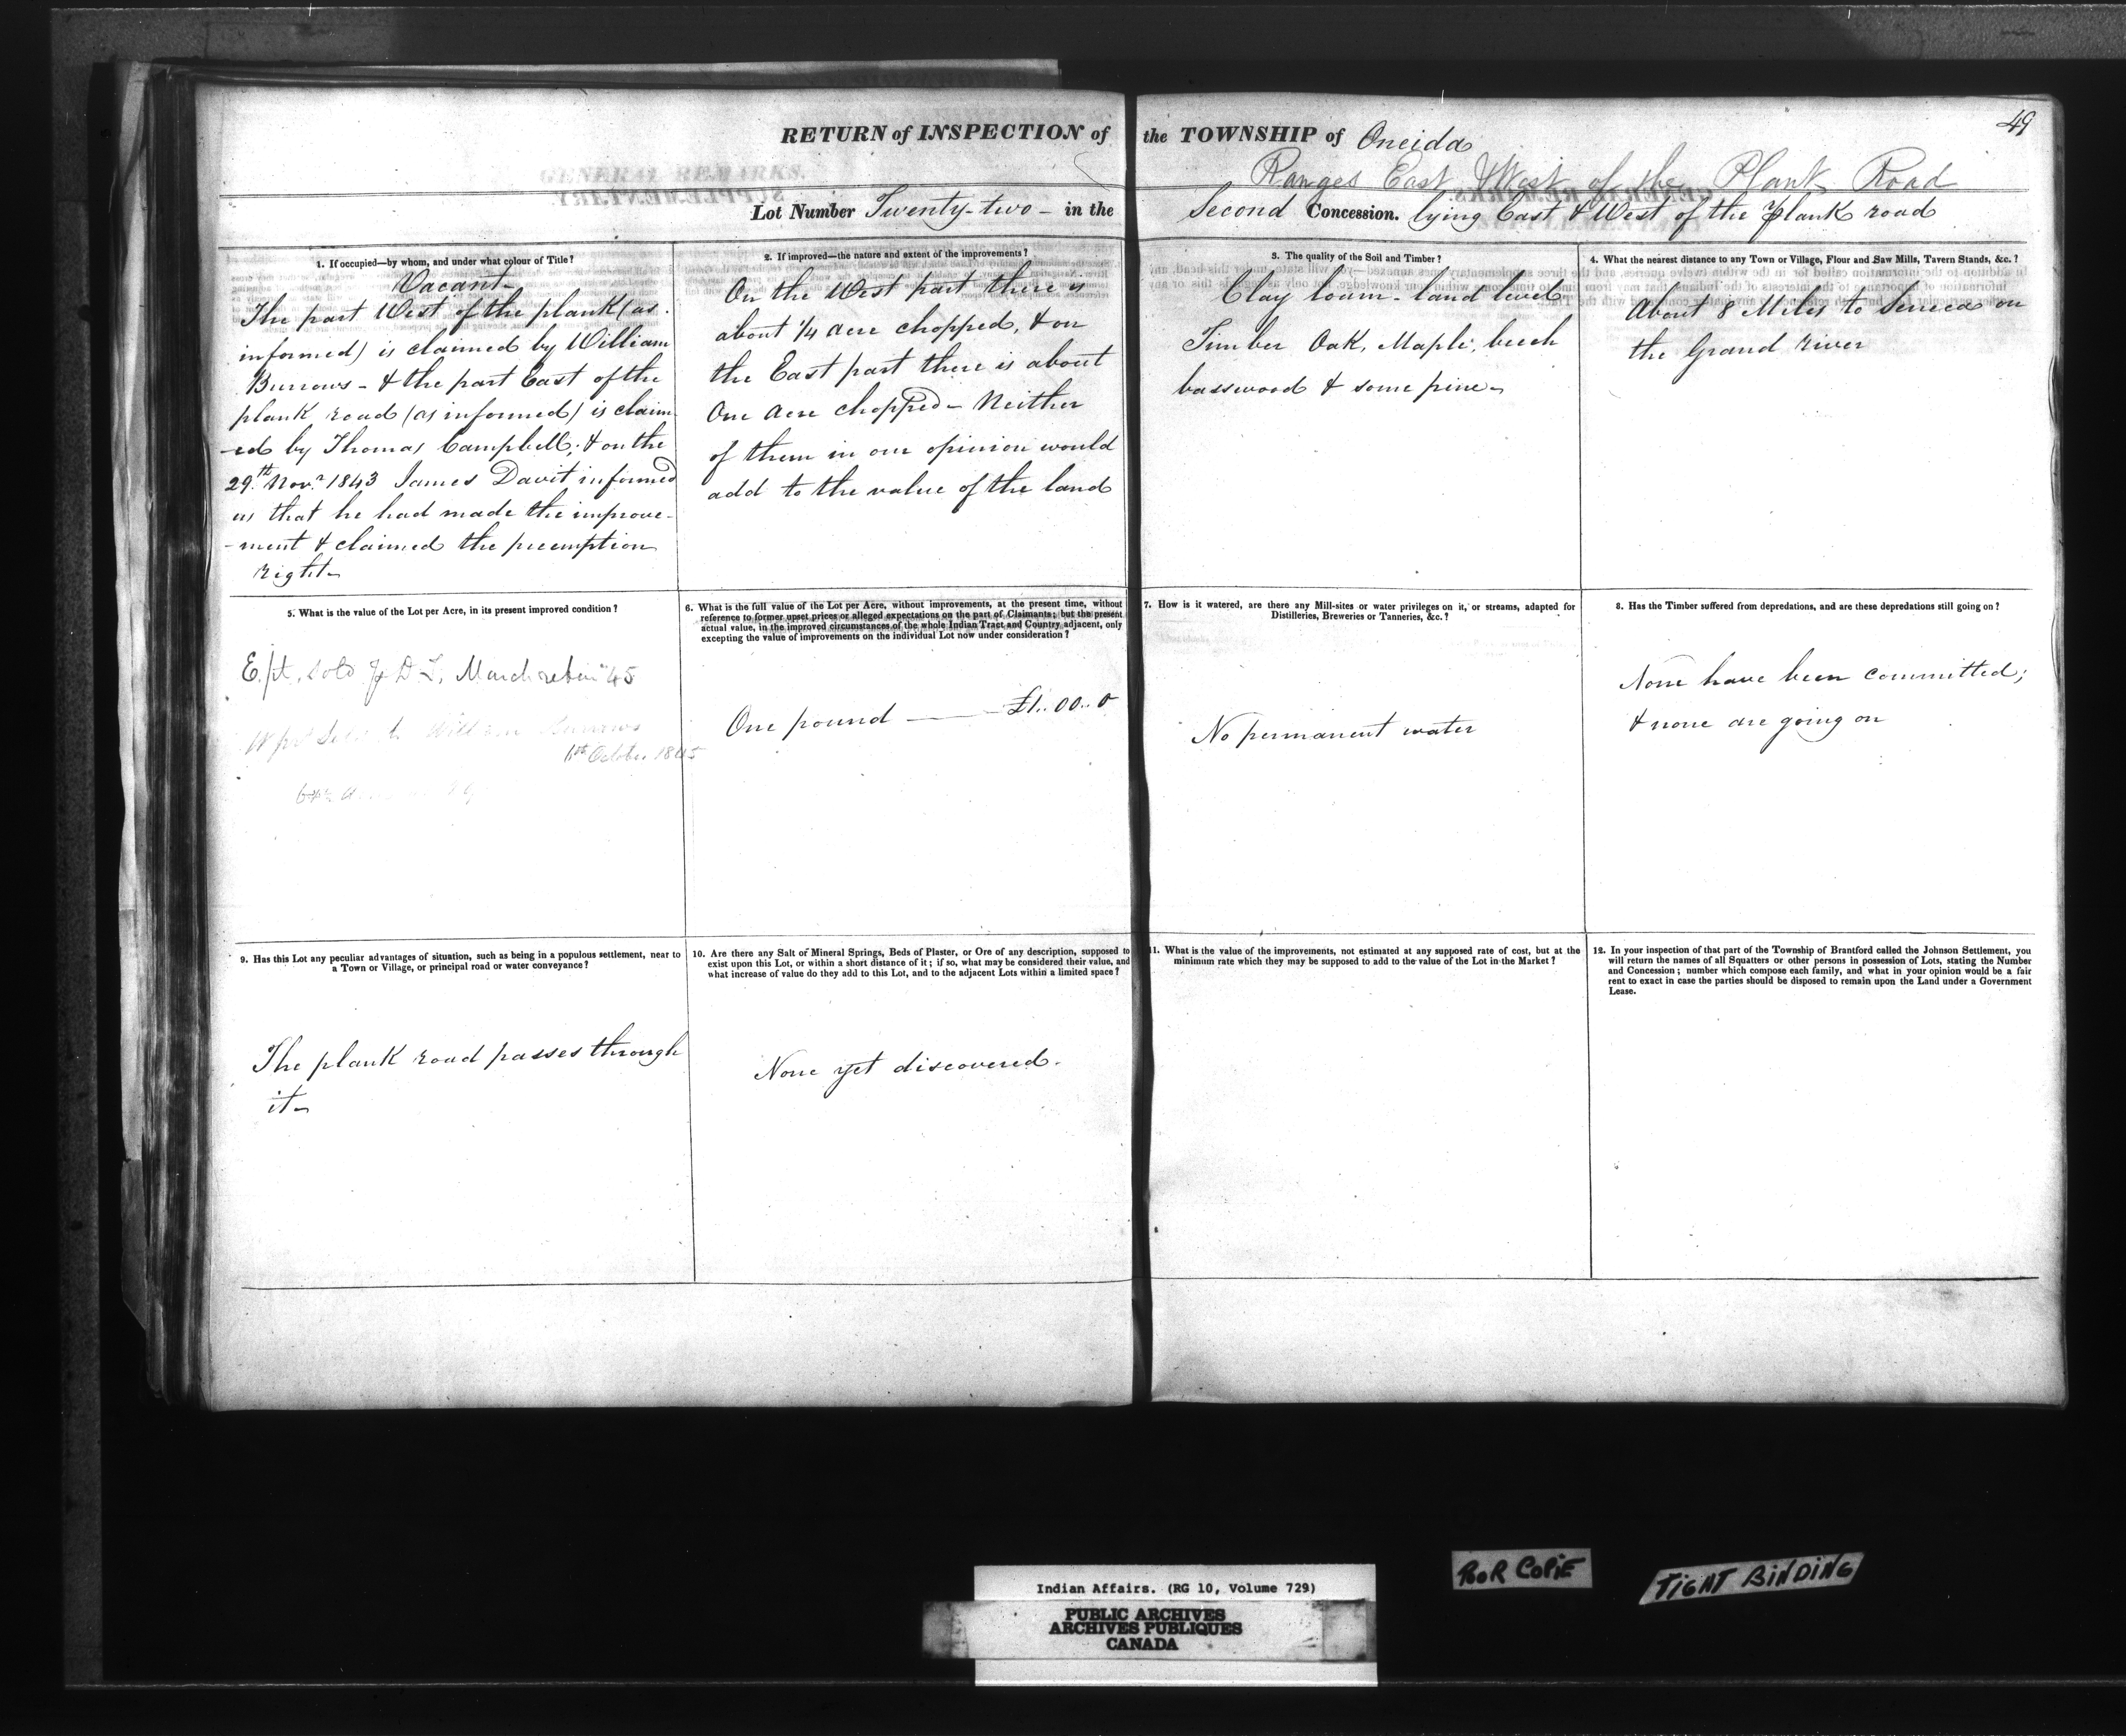 49
RETURN of INSPECTION of the TOWNSHIP of Oneida
Ranges East & West of the Plank Road
Lot Number Twenty-two - in the Second Concession. lying East & West of the plank road
1. If occupied—by whom, and under what colour of Title?
Vacant-
The part West of the plank (as
informed) is claimed by William
Burrows - & the part East of the
plank road (as informed) is claim
-ed by Thomas Campbell; & on the
29th Novr 1843 James Davit informed
us that he had made the improve-
-ment & claimed the preemption
right-
2. If improved—the nature and extent of the improvements?
On the West part there is
about 1/4 acre chopped, & on
the East part there is about
One acre chopped - Neither
of them in our opinion would
add to the value of the land
3. The quality of the Soil and Timber?
Clay loam - land level
Timber Oak, Maple, beech
basswood & some pine-
4. What the nearest distance to any Town or Village, Flour and Saw Mills, Tavern Stands, &c. ?
About 8 Miles to Seneca on
the Grand river
5. What is the value of the Lot per Acre, in its present improved condition?
E. pt. sold J D L, March 45
W pt Sold to William Burrows
11th October 1845
6. What is the full value of the Lot per Acre, without improvements, at the present time, without
reference to former upset prices or alleged expectations on the part of Claimants; but the present
actual value, in the improved circumstances of the whole Indian Tract and Country adjacent, only
excepting the value of improvements on the individual Lot now under consideration?
One pound — £1..00..0
7. How is it watered, are there any Mill-sites or water privileges on it, or streams, adapted for
Distilleries, Breweries or Tanneries, &c. ?
No permanent water
8. Has the Timber suffered from depredations, and are these depredations still going on?
None have been committed;
& none are going on
9. Has this Lot any peculiar advantages of situation, such as being in a populous settlement, near to
a Town or Village, or principal road or water conveyance?
The plank road passes through
it-
10. Are there any Salt or Mineral Springs, Beds of Plaster, or Ore of any description, supposed to
exist upon this Lot, or within a short distance of it; if so, what may be considered their value, and
what increase of value do they add to this Lot, and to the adjacent Lots within a limited space?
None yet discovered.
11. What is the value of the improvements, not estimated at any supposed rate of cost, but at the
minimum rate which they may be supposed to add to the value of the Lot in the Market?
12. In your inspection of that part of the Township of Brantford called the Johnson Settlement, you
will return the names of all Squatters or other persons in possession of Lots, stating the Number
and Concession; number which compose each family, and what in your opinion would be a fair
rent to exact in case the parties should be disposed to remain upon the Land under a Government
Lease.
Indian Affairs. (RG 10, Volume 729)
PUBLIC ARCHIVES
ARCHIVES PUBLIQUES
CANADA
POOR COPIE
TIGHT BINDING